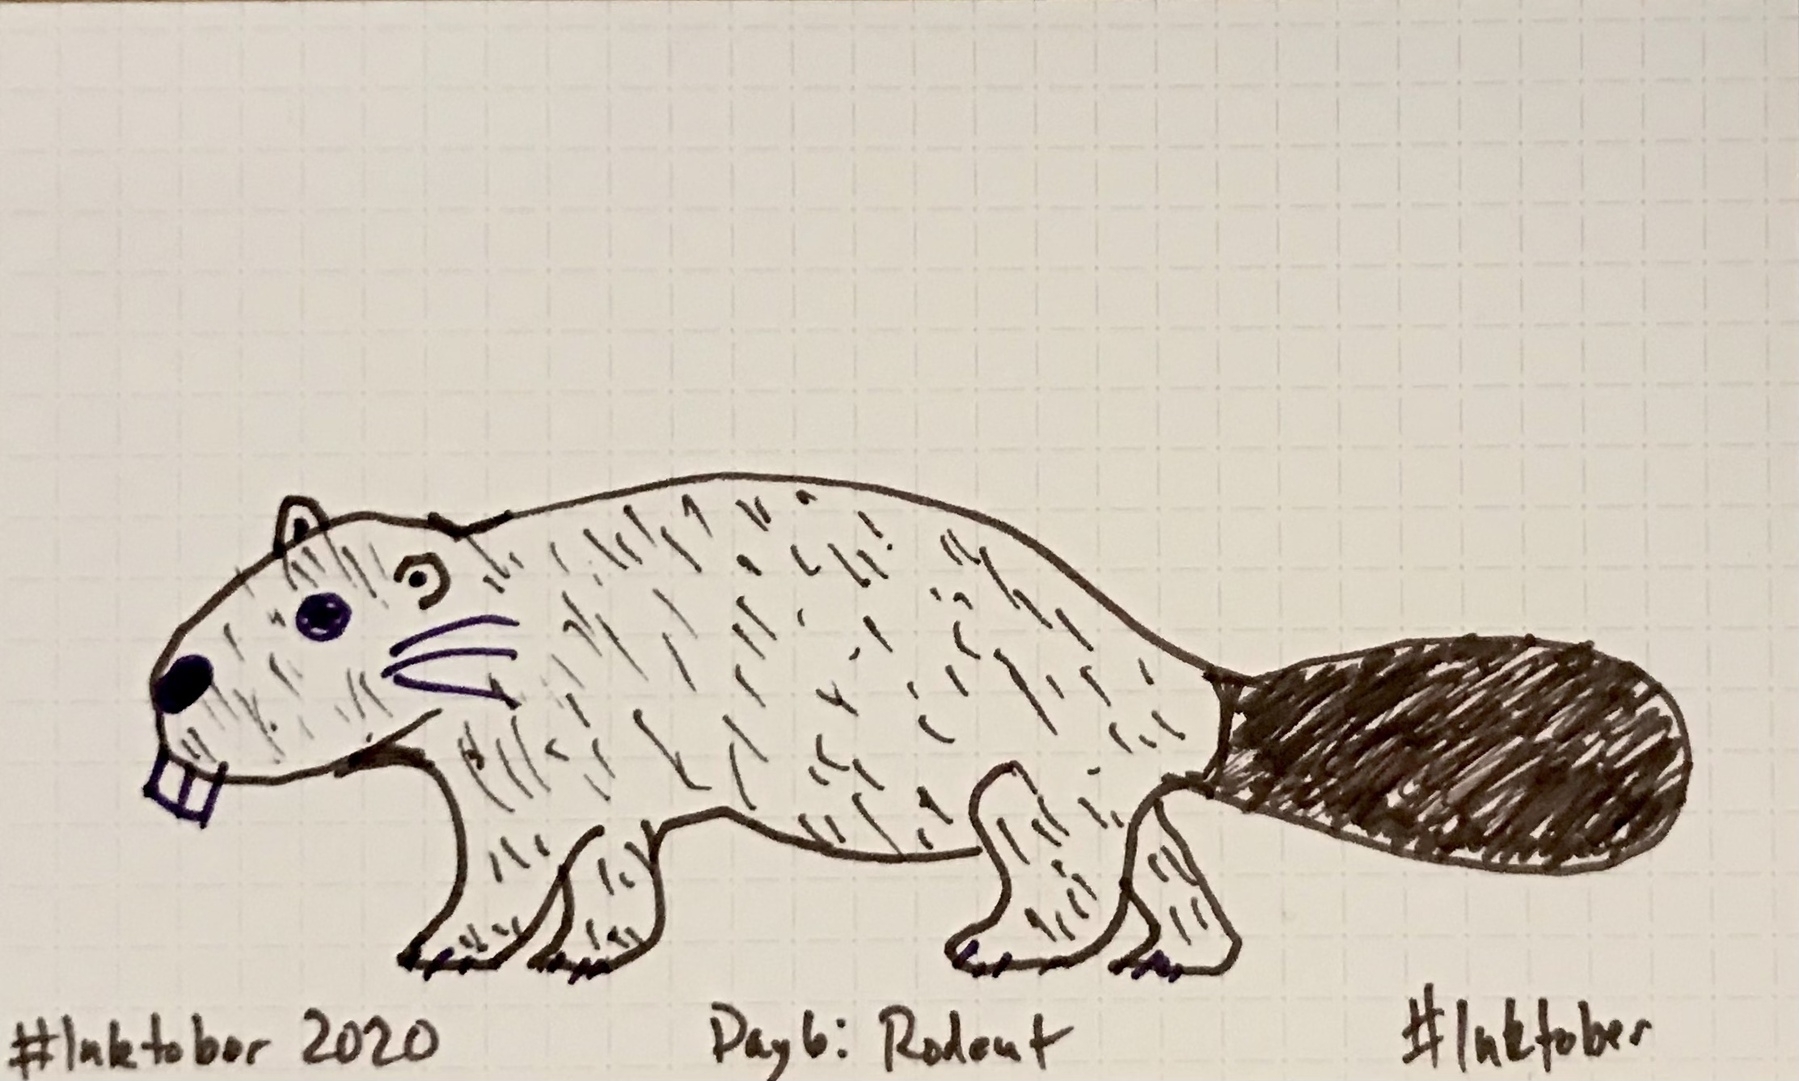 #Inktober 2020 Day 6: Rodent #Inktober